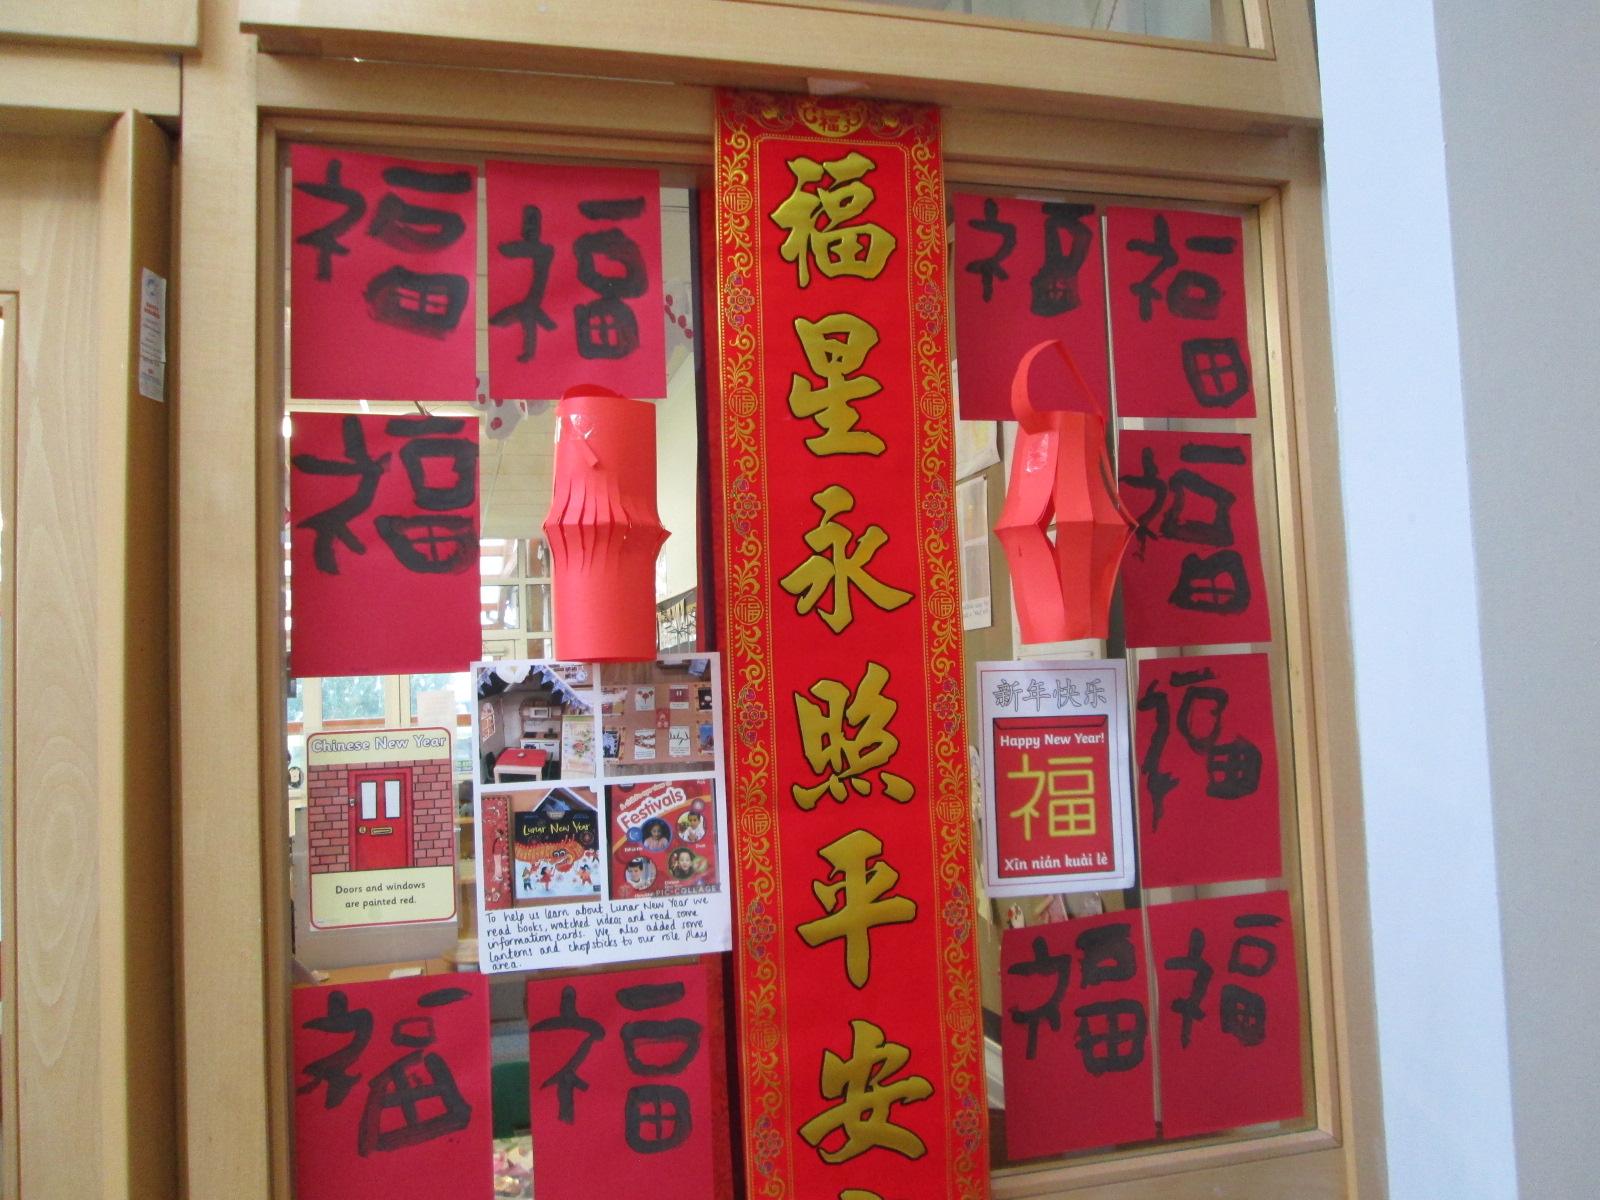 福
福
福
福
福
福
星
永
照
平
安
福
福
福
福
福
福
Chinese New Year
Doors and windows
are painted red.
Lunar New Year
Festivals
PIC•COLLAGE
To help us learn about Lunar New Year we
read books, watched videos and read some
information cards. We also added some
lanterns and chopsticks to our role play
area.
新年快乐
Happy New Year!
福
Xīn nián kuài lè